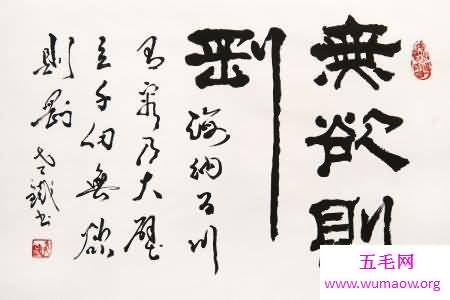 無欲則
剛
海納百川
有容乃大壁
立千仞無欲
則剛
五毛网
www.wumaow.org